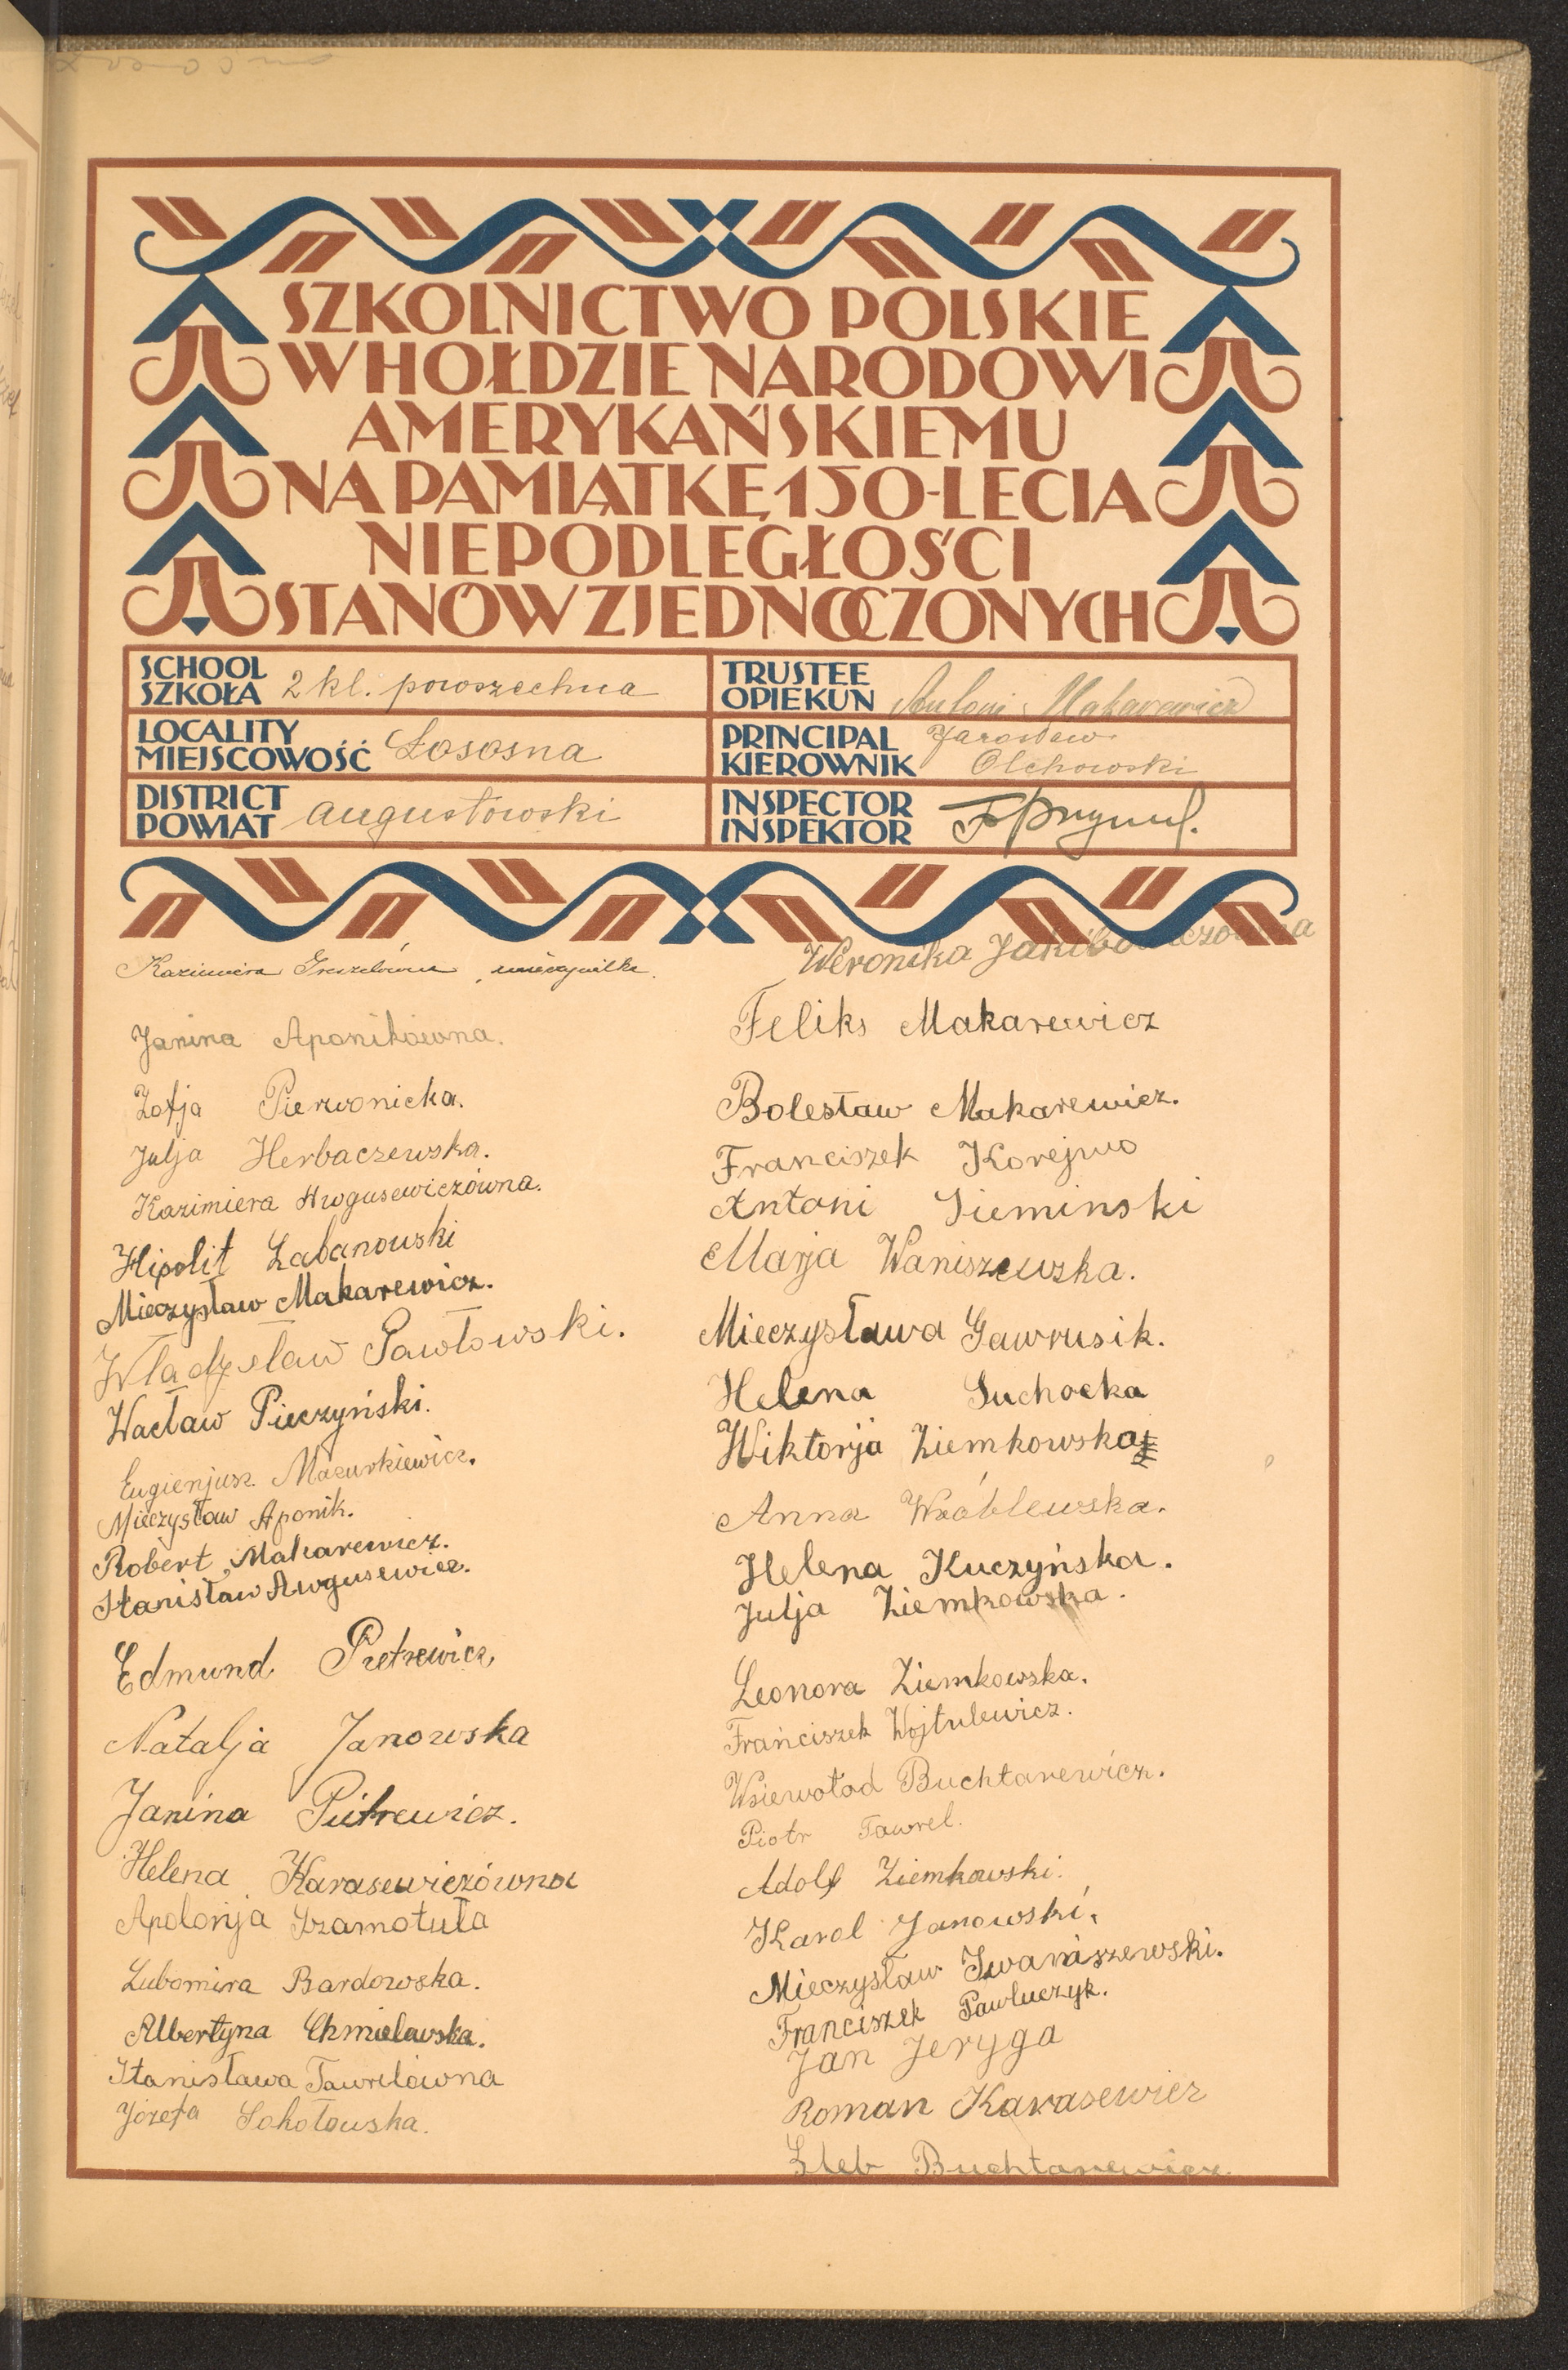 SZKOLNICTWO POLSKIE
W HOŁDZIE NARODOWI
AMERYKAŃSKIEMU
NA PAMIĄTKĘ 150-LECIA
NIEPODLEGŁOŚCI
STANÓW ZJEDNOCZONYCH
SCHOOL
SZKOŁA 2 kl. powszechna
LOCALITY
MIEJSCOWOŚĆ Łososna
DISTRICT
POWIAT augustowski
TRUSTEE
OPIEKUN Antoni Makarewicz
PRINCIPAL Jarosław
KIEROWNIK Olchowski
INSPECTOR
INSPEKTOR
Kazimiera
Janina Aponikówna.
Zofja Pierwonicka.
Julja Herbaczewska.
Kazimiera Awgusewiczówna.
Hipolit Łabanowski
Mieczysław Makarewicz.
Władysław Pawłowski.
Wacław Pieczyński.
Eugienjusz Mazurkiewicz.
Mieczysław Aponik.
Robert Makarewicz.
Stanisław Awgusewicz.
Edmund Pietrewicz
Natalja Janowska
Janina Pietrewicz.
Helena Karasewiczówna
Apolonja Szamotuła
Lubomira Bardowska.
Albertyna Chmielewska.
Stanisława Tawrelówna
Józefa Sokołowska.
Weronika Jakubowiczówna
Feliks Makarewicz
Bolesław Makarewicz.
Franciszek Korejwo
Antoni Sieminski
Marja Waniszewska.
Mieczysława Gawrusik.
Helena Suchocka
Wiktorja Ziemkowska
Anna Wróblewska.
Helena Kuczyńska.
Julja Ziemkowska.
Leonora Ziemkowska.
Franciszek Wojtulewicz.
Wsiewołod Buchtarewicz.
Piotr Tawrel.
Adolf Ziemkowski.
Karol Janowski.
Mieczysław Iwaniszewski.
Franciszek Pawluczyk.
Jan Jeryga
Roman Karasewicz
Buchtarewicz